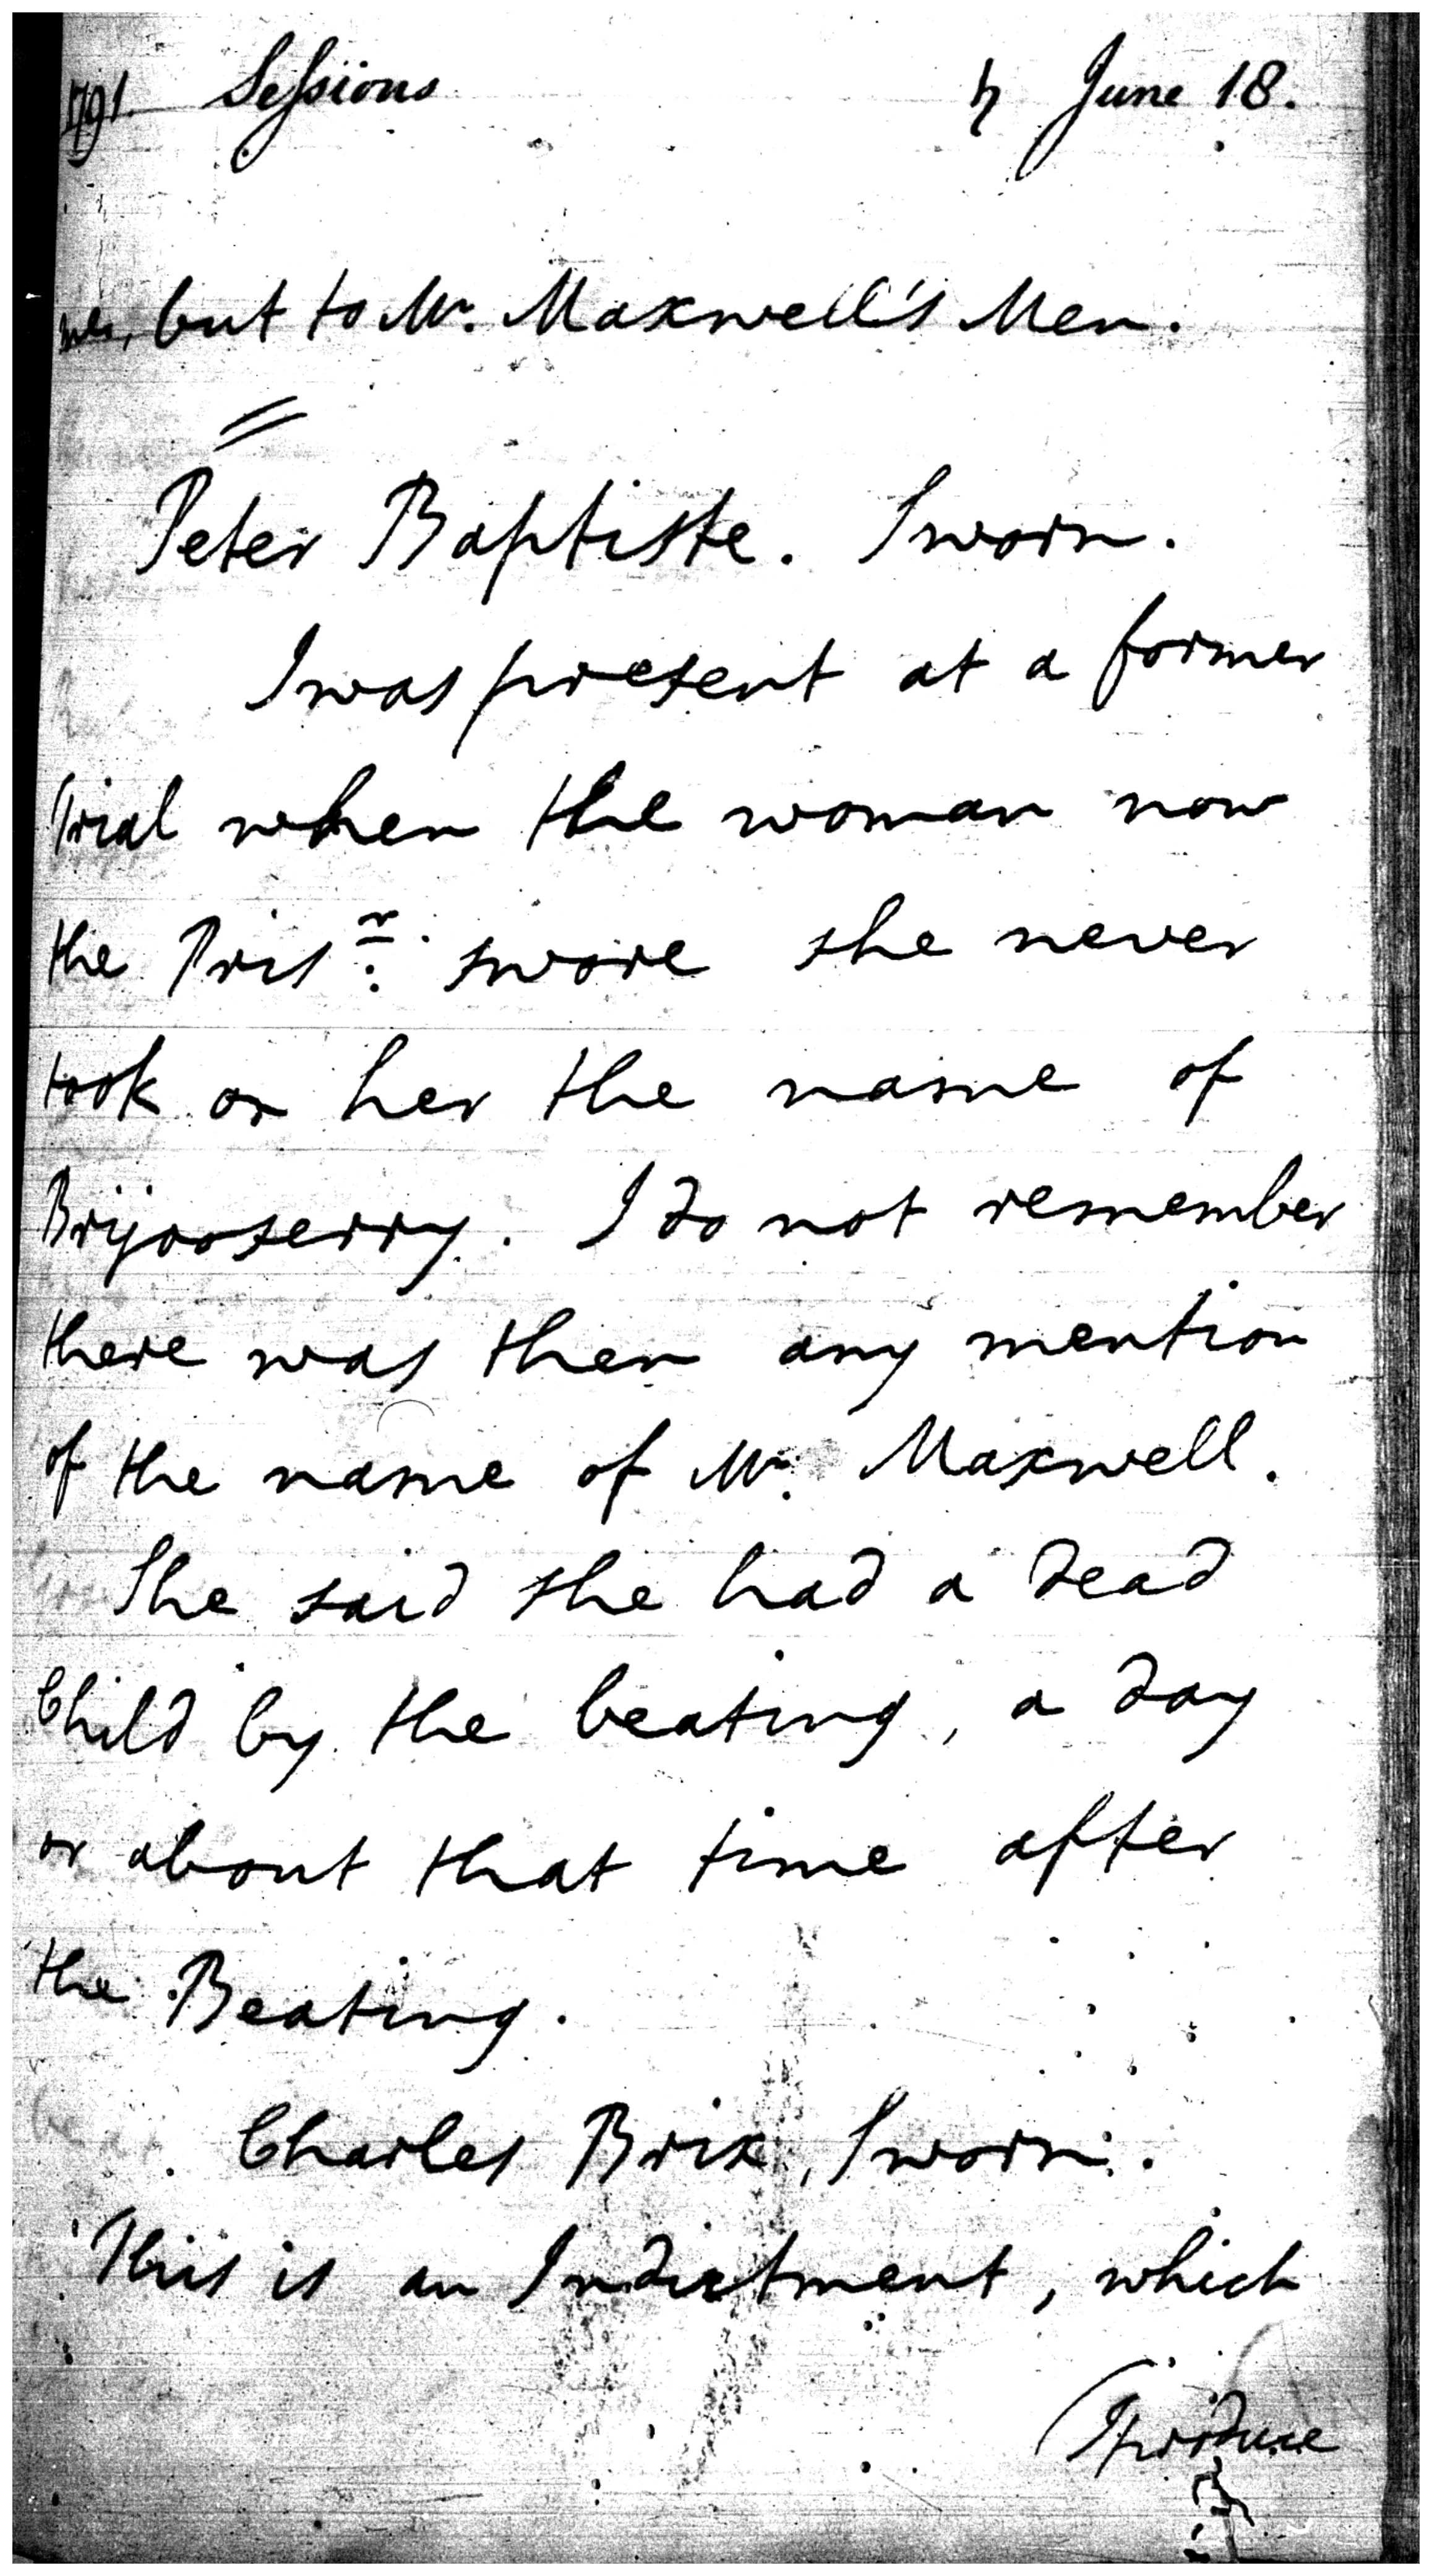 1791. Sessions ♄ June 18.
me, but to Mr. Maxwell's Men.
Peter Baptiste. Sworn.
I was present at a former
Trial when the woman now
the Prisr. swore she never
took on her the name of
Brijooserry. I do not remember
there was then any mention
of the name of Mr. Maxwell.
She said she had a dead
Child by the beating, a day
or about that time after
the Beating.
Charles Brix, Sworn.
This is an Indictment, which
I produce